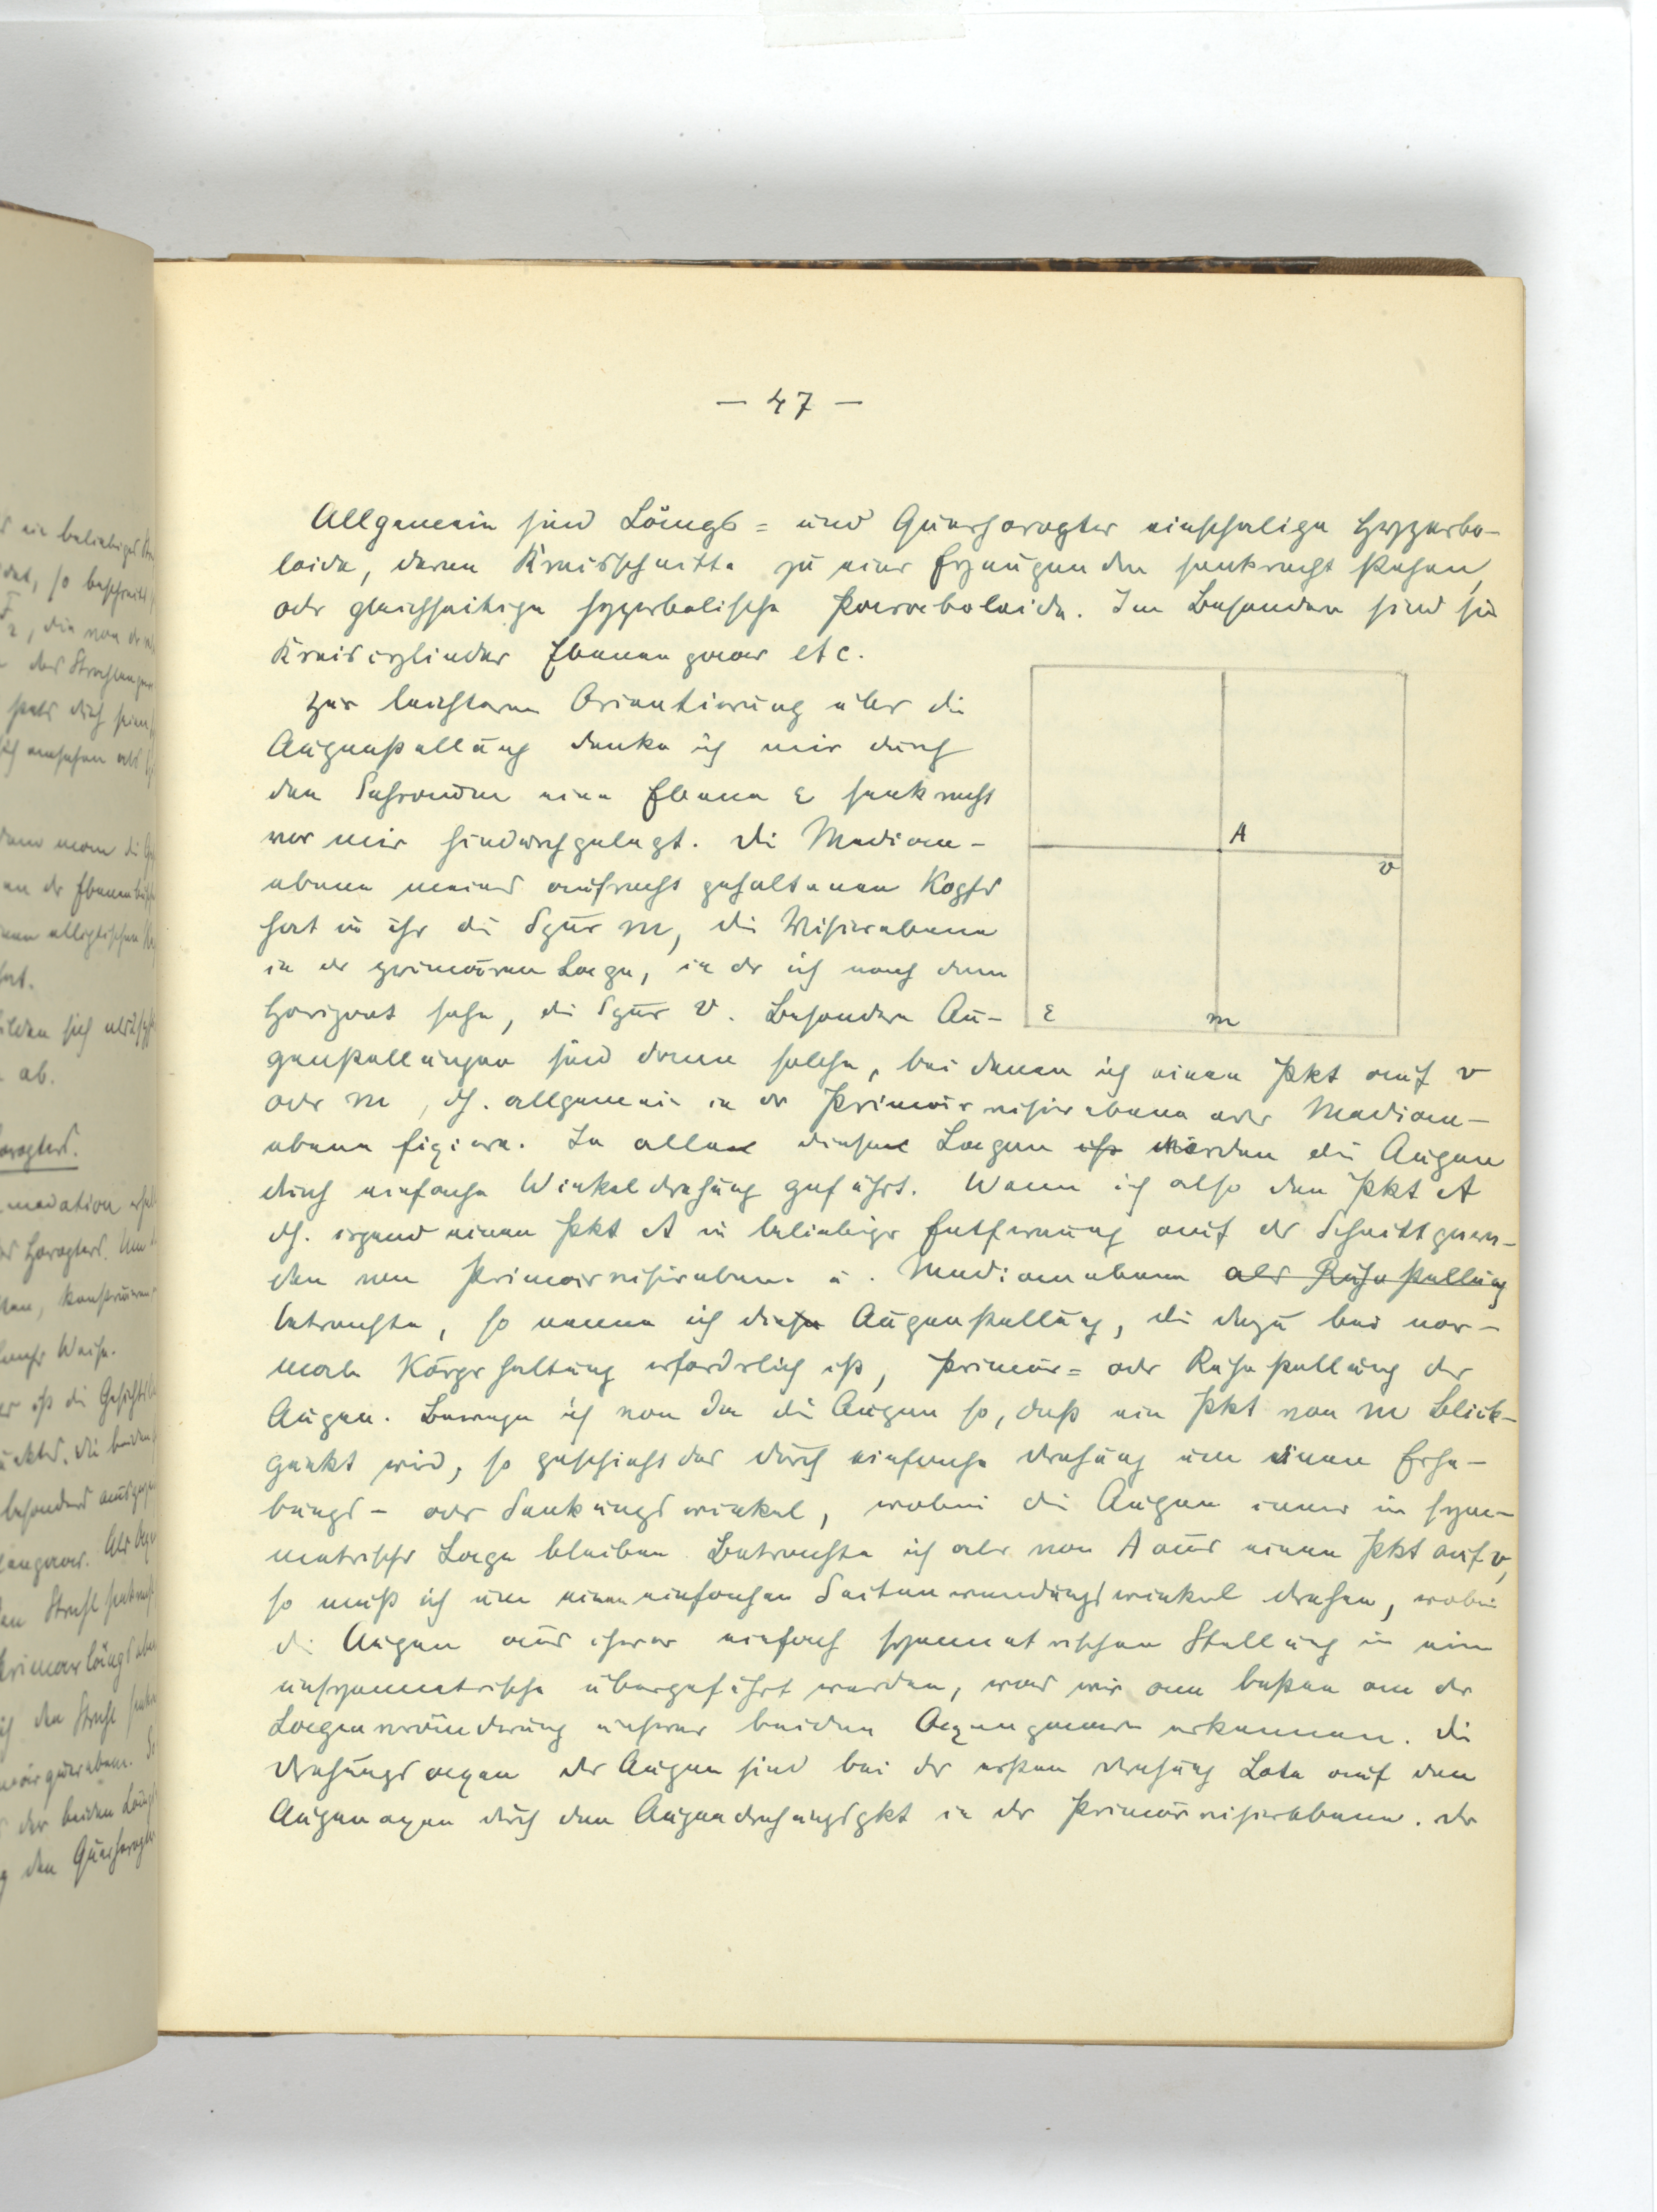 — 47 —
Allgemein sind Längs= und Querhoropter einschalige Hyperbo-
loide, deren Kreisschnitte zu einer Erzeugenden senkrecht stehen,
oder gleichseitige hyperbolische Paraboloide. Im Besonderen sind sie
Kreiscylinder Ebenenpaar etc.
Zur leichteren Orientierung über die
Augenstellung denke ich mir durch
den Sehraum eine Ebene ε senkrecht
vor mir hindurchgelegt. Die Median-
ebene meines aufrecht gehaltenen Kopfes
hat in ihr die Spur m, die Visierebene
in der primären Lage, in der ich nach dem
Horizont sehe, die Spur v. Besondere Au-
genstellungen sind dann solche, bei denen ich einen Pkt auf v
oder m, dh. allgemein in der Primärvisierebene oder Median-
ebene fixiere. In allen diesen Lagen ist werden die Augen
durch einfache Winkeldrehung geführt. Wenn ich also den Pkt A
dh. irgend einen Pkt A in beliebiger Entfernung auf der Schnittgera-
den von Primärvisierebene u. Medianebene als Ruhestellung
betrachte, so nenne ich diese Augenstellung, die dazu bei nor-
maler Körperhaltung erforderlich ist, Primär= oder Ruhestellung der
Augen. Bewege ich von da die Augen so, daß ein Pkt von m Blick-
punkt wird, so geschieht das durch einfache Drehung um einen Erhe-
bungs- oder Senkungswinkel, wobei die Augen immer in sym-
metrischer Lage bleiben. Betrachte ich aber von A aus einen Pkt auf v,
so muß ich um einen einfachen Seitenwendungswinkel drehen, wobei
die Augen aus ihrer einfach symmetrischen Stellung in eine
unsymmetrische übergeführt werden, was wir am besten an der
Lagenveränderung unserer beiden Axenpaare erkennen. Die
Drehungsaxen der Augen sind bei der ersten Drehung Lote auf den
Augenaxen durch den Augendrehungspkt in der Primärvisierebene. Der
A
v
ε
m